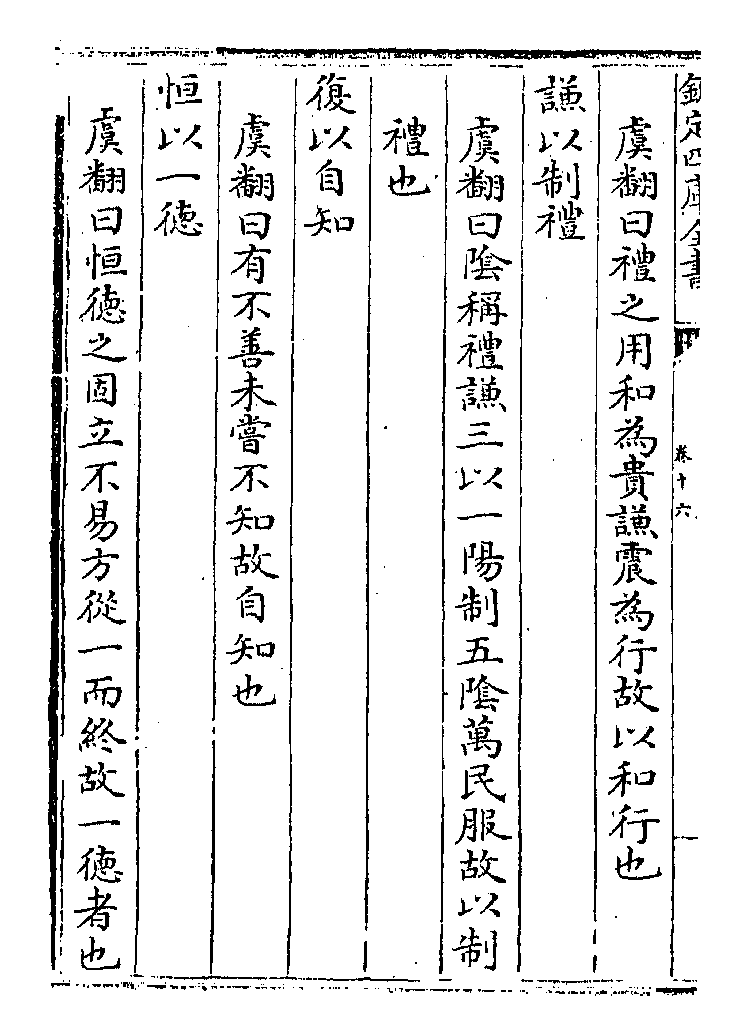 欽定四庫全書
卷十六
虞翻曰禮之用和為貴謙震為行故以和行也
謙以制禮
虞翻曰陰稱禮謙三以一陽制五陰萬民服故以制
禮也
復以自知
虞翻曰有不善未嘗不知故自知也
恒以一德
虞翻曰恒德之固立不易方從一而終故一德者也